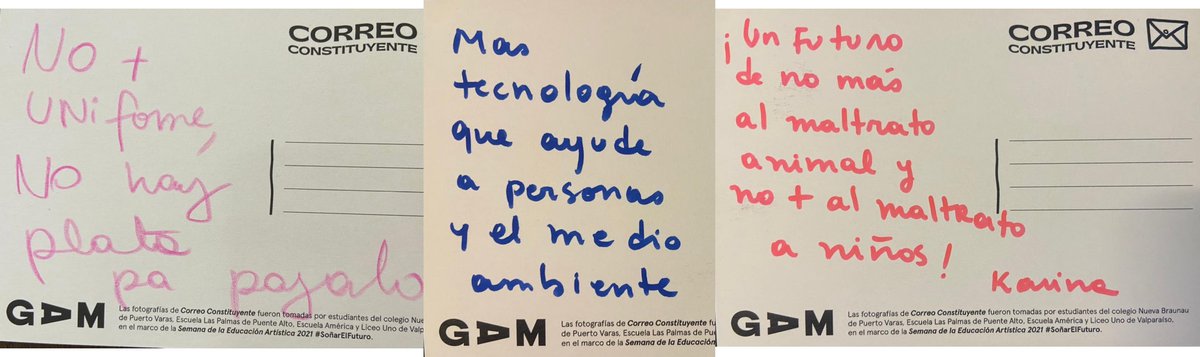 No +
UNifome,
No hay
plata
pa pagalo
CORREO
CONSTITUYENTE
GAM
Las fotografías de Correo Constituyente fueron tomadas por estudiantes del colegio Nueva Braunau
de Puerto Varas, Escuela Las Palmas de Puente Alto, Escuela América y Liceo Uno de Valp
en el marco de la Semana de la Educación Artística 2021 #SoñarElFuturo.
Mas
tecnología
que ayude
a personas
y el medio
ambiente
GAM
Las fotografías de Correo Constituyente fueron
de Puerto Varas, Escuela Las Palmas de Puente
en el marco de la Semana de la Educación Artís
¡Un Futuro
de no más
al maltrato
animal y
no + al maltrato
a niños!
Karina
CORREO
CONSTITUYENTE
GAM
Las fotografías de Correo Constituyente fueron tomadas por estudiantes del colegio Nueva Braunau
de Puerto Varas, Escuela Las Palmas de Puente Alto, Escuela América y Liceo Uno de Valparaíso,
en el marco de la Semana de la Educación Artística 2021 #SoñarElFuturo.